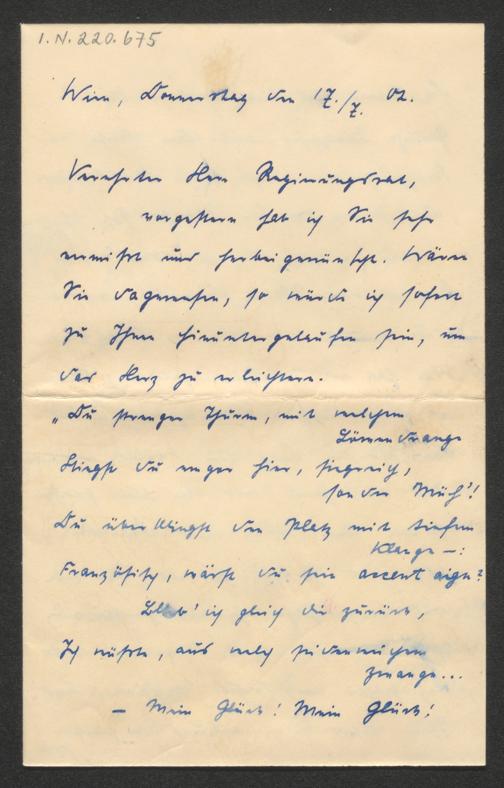 I.N. 220.675
Wien, Donnerstag den 17./7. 02.
Verehrter Herr Regierungsrat,
vorgestern hab ich Sie sehr
vermißt und herbeigewünscht. Wären
Sie dagewesen, so würde ich sofort
zu Ihnen hinuntergelaufen sein, um
das Herz zu erleichtern.
„Du strenger Thurm, mit welchem
Löwendrange
Stiegst du empor hier, siegreich,
sonder Müh'!
Du überklingst den Platz mit tiefem
Klange —:
Französisch, wärst du sein accent aigu?
Blieb' ich gleich dir zurück,
Ich wüßte, aus welch seidenweichem
Zwange...
— Mein Glück! Mein Glück!